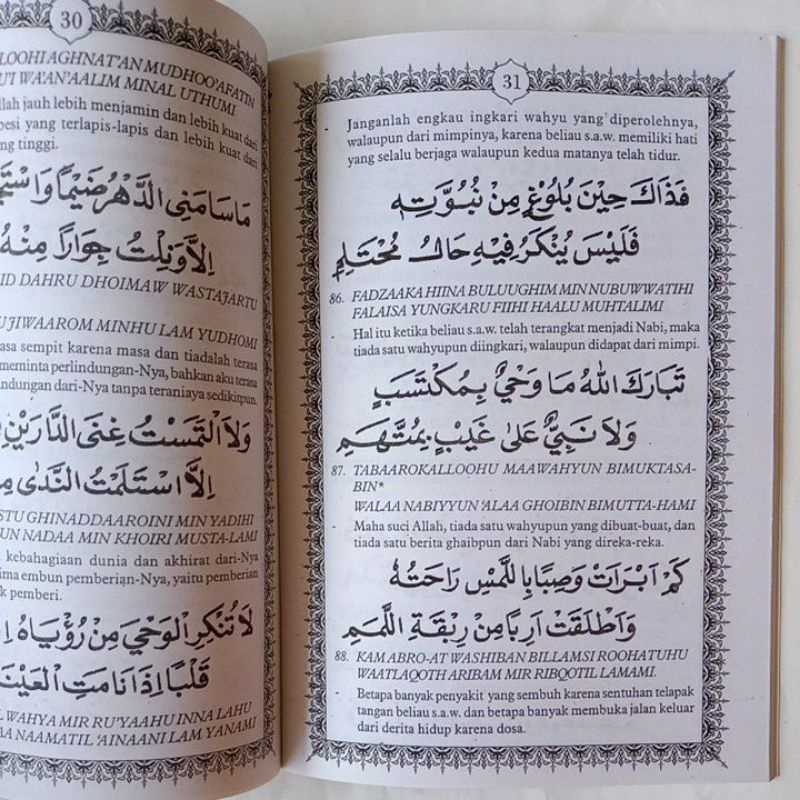 30
LOOHI AGHNAT'AN MUDHOO'AFATIN
U'I WA'AN'AALIM MINAL UTHUMI
llah jauh lebih menjamin dan lebih kuat dari
besi yang terlapis-lapis dan lebih kuat dari
ng tinggi.
مَاسَامَنِى الدَّهْرُ ضَيْمًا وَاسْتَجَ
اِلاَّ وَنِلْتُ جِوَارًا مِنْهُ
ID DAHRU DHOIMAW WASTAJARTU
U JIWAAROM MINHU LAM YUDHOMI
asa sempit karena masa dan tiadalah terasa
meminta perlindungan-Nya, bahkan aku terasa
indungan dari-Nya tanpa teraniaya sedikitpun.
وَلَا الْتَمَسْتُ غِنَى الدَّارَيْنِ
اِلاَّ اسْتَلَمْتُ النَّدٰى مِ
STU GHINADDAAROINI MIN YADIHI
UN NADAA MIN KHOIRI MUSTA-LAMI
kebahagiaan dunia dan akhirat dari-Nya
ima embun pemberian-Nya, yaitu pemberian
k pemberi.
لَاتُنْكِرِ الْوَحْيَ مِنْ رُؤْيَاهُ اِ
قَلْبًا اِذَا نَامَتِ الْعَيْنَ
L WAHYA MIR RU'YAAHU INNA LAHU
AA NAAMATIL 'AINAANI LAM YANAMI
31
Janganlah engkau ingkari wahyu yang diperolehnya,
walaupun dari mimpinya, karena beliau s.a.w. memiliki hati
yang selalu berjaga walaupun kedua matanya telah tidur.
فَذَاكَ حِيْنَ بُلُوْغٍ مِنْ نُبُوَّتِهِ
فَلَيْسَ يُنْكَرُ فِيْهِ حَالُ مُحْتَلِمِ
86. FADZAAKA HIINA BULUUGHIM MIN NUBUWWATIHI
FALAISA YUNGKARU FIIHI HAALU MUHTALIMI
- Hal itu ketika beliau s.a.w. telah terangkat menjadi Nabi, maka
tiada satu wahyupun diingkari, walaupun didapat dari mimpi.
تَبَارَكَ اللهُ مَا وَحْيٌ بِمُكْتَسَبٍ
وَلَا نَبِيٌّ عَلٰى غَيْبٍ بِمُتَّهَمِ
87. TABAAROKALLOOHU MAAWAHYUN BIMUKTASA-
BIN*
WALAA NABIYYUN 'ALAA GHOIBIN BIMUTTA-HAMI
- Maha suci Allah, tiada satu wahyupun yang dibuat-buat, dan
tiada satu berita ghaibpun dari Nabi yang direka-reka.
كَمْ اَبْرَاَتْ وَصِبًا بِاللَّمْسِ رَاحَتُهُ
وَاَطْلَقَتْ اَرِبًا مِنْ رِبْقَةِ اللَّمَمِ
88. KAM ABRO-AT WASHIBAN BILLAMSI ROOHATUHU
WAATLAQOTH ARIBAM MIR RIBQOTIL LAMAMI.
- Betapa banyak penyakit yang sembuh karena sentuhan telapak
tangan beliau s.a.w. dan betapa banyak membuka jalan keluar
dari derita hidup karena dosa.